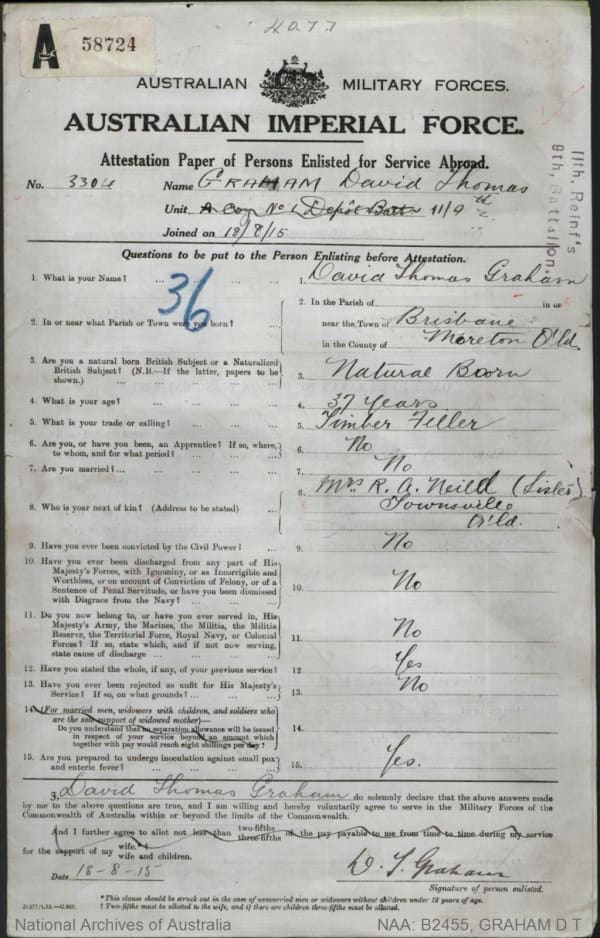 4077
A 58724
AUSTRALIAN MILITARY FORCES.
AUSTRALIAN IMPERIAL FORCE.
Attestation Paper of Persons Enlisted for Service Abroad.
11th. Reinf's
9th. Battalion.
No. 3304 Name GRAHAM David Thomas
Unit A Coy No 1 Depôt Battn 11/9th
Joined on 18/8/15
Questions to be put to the Person Enlisting before Attestation.
36
1. What is your Name? ... ... ... 1. David Thomas Graham
2. In or near what Parish or Town were you born? ... 2. In the Parish of in or
near the Town of Brisbane
in the County of Moreton Q'ld.
3. Are you a natural born British Subject or a Naturalized
British Subject? (N.B.—If the latter, papers to be
shown.) ... ... ... 3. Natural Boorn
4. What is your age? ... ... ... 4. 37 Years
5. What is your trade or calling? ... ... ... 5. Timber Feller
6. Are you, or have you been, an Apprentice? If so, where,
to whom, and for what period? ... ... 6. No
7. Are you married? ... ... ... 7. No
8. Who is your next of kin? (Address to be stated) ... 8. Mrs R. A. Neild (Sister)
Townsville
Q'ld.
9. Have you ever been convicted by the Civil Power? ... 9. No
10. Have you ever been discharged from any part of His
Majesty's Forces, with Ignominy, or as Incorrigible and
Worthless, or on account of Conviction of Felony, or of a
Sentence of Penal Servitude, or have you been dismissed
with Disgrace from the Navy? ... ... 10. No
11. Do you now belong to, or have you ever served in, His
Majesty's Army, the Marines, the Militia, the Militia
Reserve, the Territorial Force, Royal Navy, or Colonial
Forces? If so, state which, and if not now serving,
state cause of discharge ... ... ... 11. No
12. Have you stated the whole, if any, of your previous service? 12. Yes
13. Have you ever been rejected as unfit for His Majesty's
Service? If so, on what grounds? ... ... 13. No
14. (For married men, widowers with children, and soldiers who
are the sole support of widowed mother)—
Do you understand that no separation allowance will be issued
in respect of your service beyond an amount which
together with pay would reach eight shillings per day? 14.
15. Are you prepared to undergo inoculation against small pox
and enteric fever? ... ... ... 15. Yes.
I, David Thomas Graham do solemnly declare that the above answers made
by me to the above questions are true, and I am willing and hereby voluntarily agree to serve in the Military Forces of the
Commonwealth of Australia within or beyond the limits of the Commonwealth.
And I further agree to allot not less than two-fifths three-fifths of the pay payable to me from time to time during my service
for the support of my wife.* wife and children.
Date 18-8-15 D. T. Graham
Signature of person enlisted.
*This clause should be struck out in the case of unmarried men or widowers without children under 18 years of age.
† Two-fifths must be allotted to the wife, and if there are children three-fifths must be allotted.
National Archives of Australia NAA: B2455, GRAHAM D T